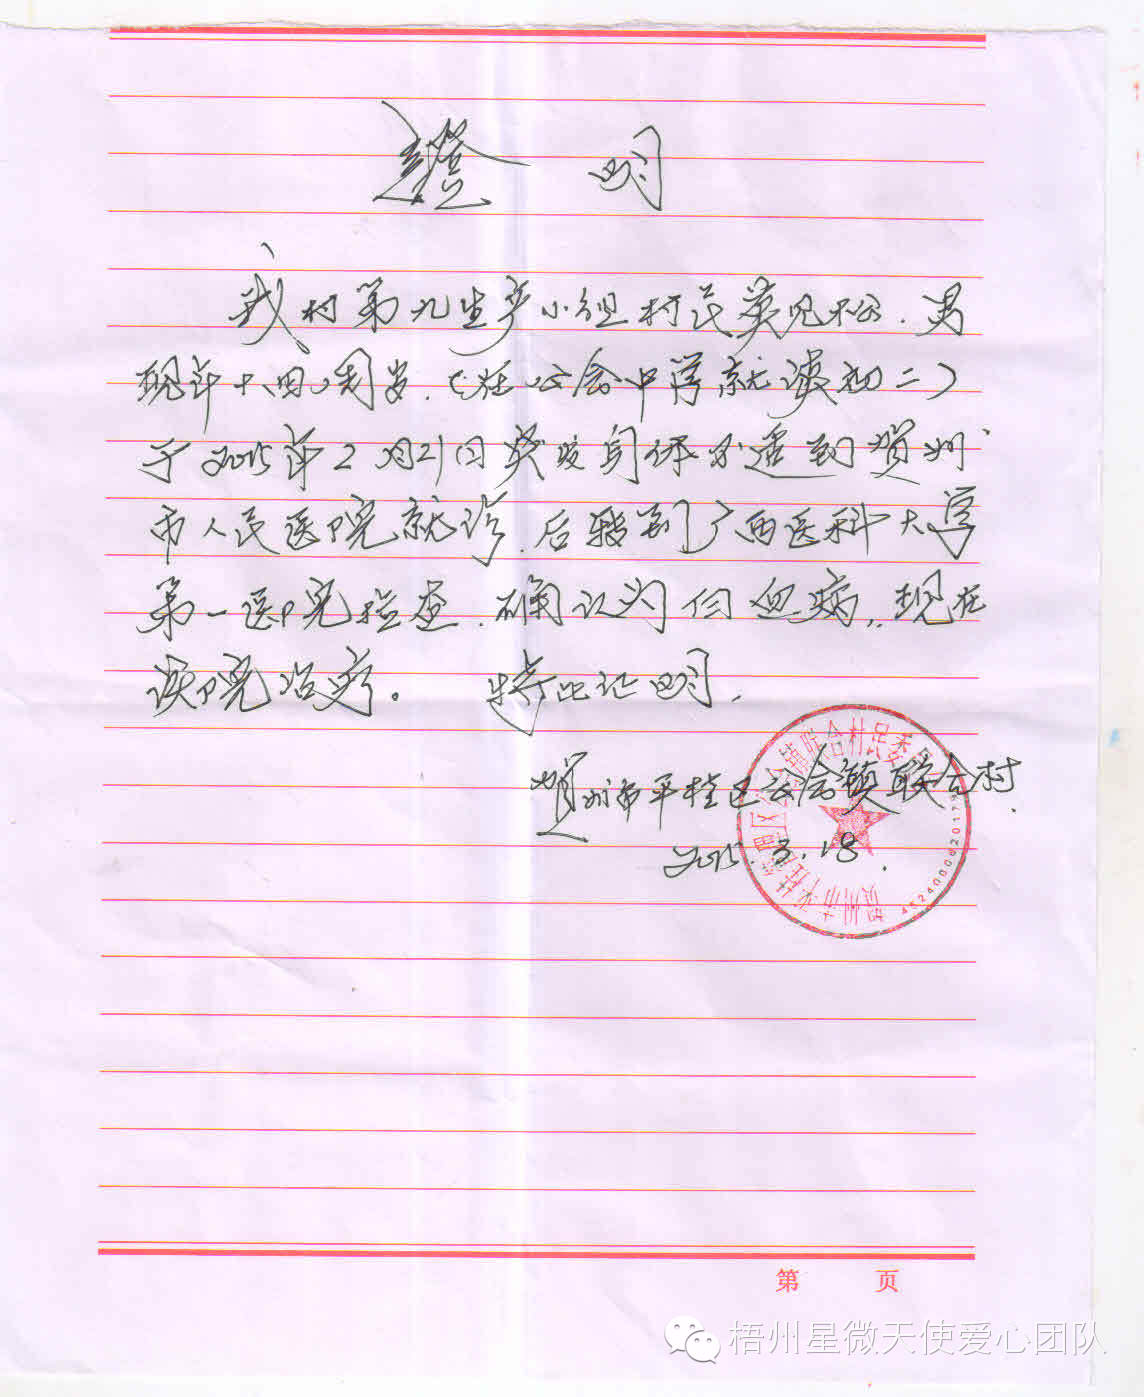 證 明
我村第九生产小组村民莫见松.男
现年十四周岁.(在公会中学就读初二)
于2015年2月21日突发身体不适到贺州
市人民医院就诊.后转到广西医科大学
第一医院检查.确认为白血病,.现在
该院治疗。 特此证明.
贺州市平桂区公会镇联合村.
2015.3.18.
贺州市平桂管理区公会镇联合村民委员会
第 页
梧州星微天使爱心团队